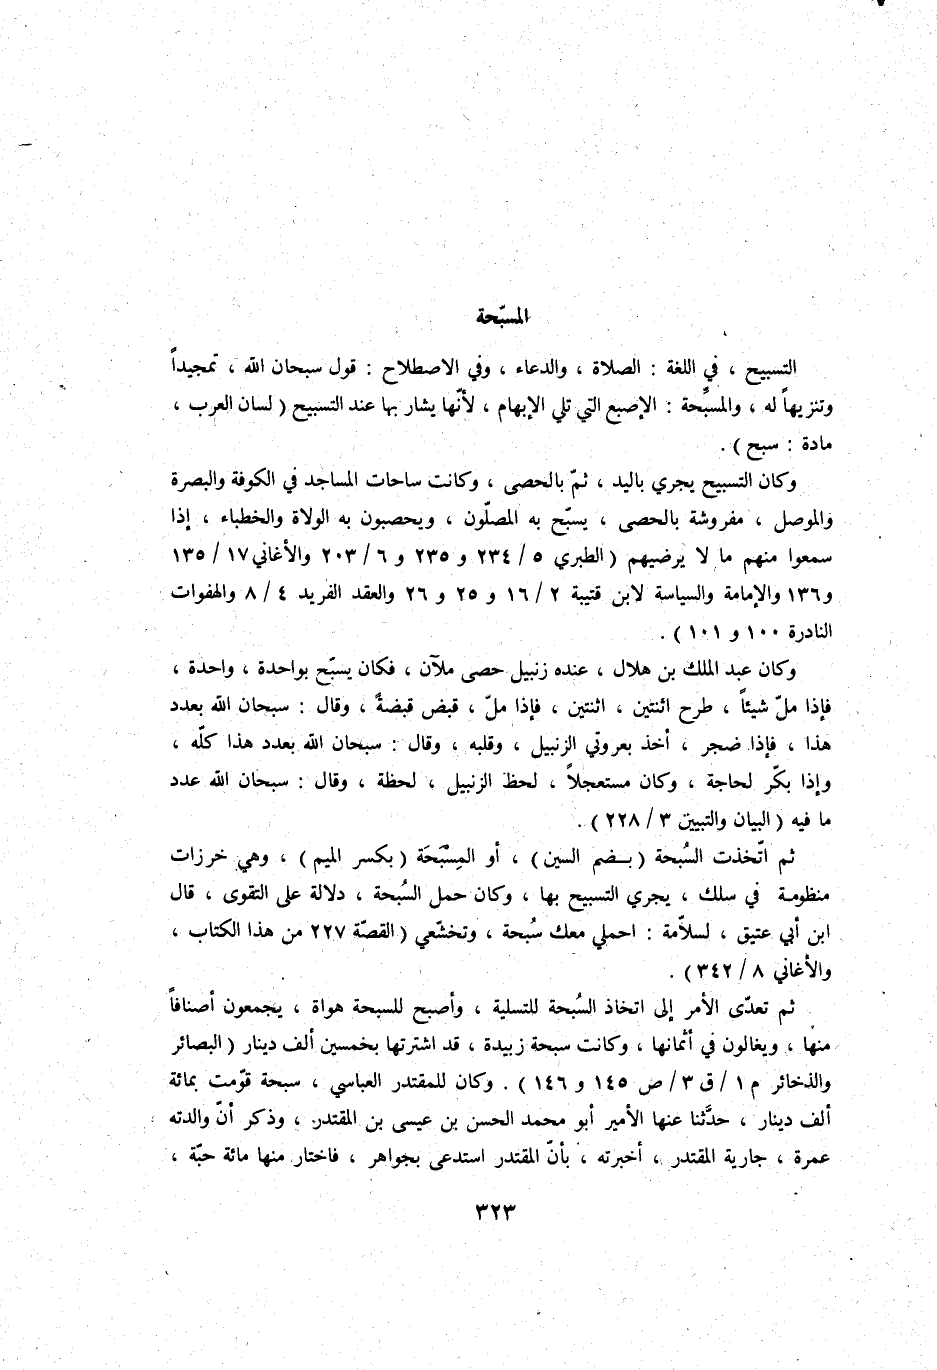 المسبّحة
التسبيح ، في اللغة : الصلاة ، والدعاء ، وفي الاصطلاح : قول سبحان الله ، تمجيداً
وتنزيهاً له ، والمسبِّحة : الإصبع التي تلي الإبهام ، لأنّها يشار بها عند التسبيح ( لسان العرب ،
مادة : سبح ) .
وكان التسبيح يجري باليد ، ثمّ بالحصى ، وكانت ساحات المساجد في الكوفة والبصرة
والموصل ، مفروشة بالحصى ، يسبّح به المصلّون ، ويحصبون به الولاة والخطباء ، إذا
سمعوا منهم ما لا يرضيهم ( الطبري ٥ / ٢٣٤ و ٢٣٥ و ٦ / ٢٠٣ والأغاني ١٧ / ١٣٥
و١٣٦ والإمامة والسياسة لابن قتيبة ٢ / ١٦ و ٢٥ و ٢٦ والعقد الفريد ٤ / ٨ والهفوات
النادرة ١٠٠ و ١٠١ ) .
وكان عبد الملك بن هلال ، عنده زنبيل حصى ملآن ، فكان يسبّح بواحدة ، واحدة ،
فإذا ملّ شيئاً ، طرح اثنتين ، اثنتين ، فإذا ملّ ، قبض قبضةً ، وقال : سبحان الله بعدد
هذا ، فإذا ضجر ، أخذ بعروتي الزنبيل ، وقلبه ، وقال : سبحان الله بعدد هذا كلّه ،
وإذا بكّر لحاجة ، وكان مستعجلاً ، لحظ الزنبيل ، لحظة ، وقال : سبحان الله عدد
ما فيه ( البيان والتبيين ٣ / ٢٢٨ ) .
ثم اتّخذت السُبحة ( بـضم السين ) ، أو المِسْبَحَة ( بكسر الميم ) ، وهي خرزات
منظومـة في سلك ، يجري التسبيح بها ، وكان حمل السُبحة ، دلالة على التقوى ، قال
ابن أبي عتيق ، لسلاّمة : احملي معك سُبحة ، وتخشّعي ( القصّة ٢٢٧ من هذا الكتاب ،
والأغاني ٨ / ٣٤٢ ) .
ثم تعدّى الأمر إلى اتخاذ السُبحة للتسلية ، وأصبح للسبحة هواة ، يجمعون أصنافاً
منها ، ويغالون في أثمانها ، وكانت سبحة زبيدة ، قد اشترتها بخمسين ألف دينار ( البصائر
والذخائر م ١ / ق ٣ / ص ١٤٥ و ١٤٦ ) . وكان للمقتدر العباسي ، سبحة قوّمت بمائة
ألف دينار ، حدَّثنا عنها الأمير أبو محمد الحسن بن عيسى بن المقتدر ، وذكر أنّ والدته
عمرة ، جارية المقتدر ، أخبرته ، بأنّ المقتدر استدعى بجواهر ، فاختار منها مائة حبّة ،
٣٢٣